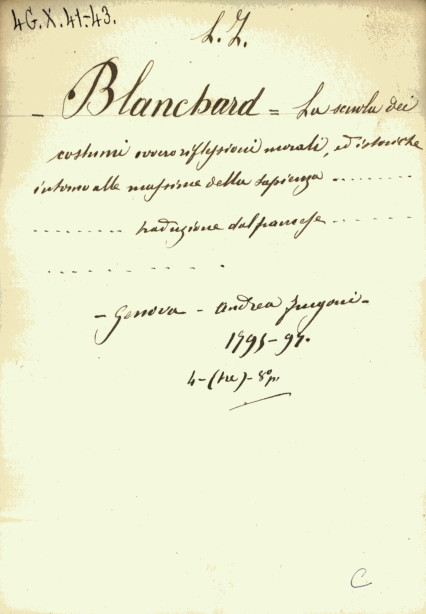 4G.X.41-43.
L. Z.
- Blanchard = La scuola dei
costumi ovvero riflessioni morali, ed istoriche
intorno alle massime della sapienza ........
......... traduzione dal francese ......
..........
- Genova - Andrea Frugoni -
1795-97.
4-(tre)-8º p.
C